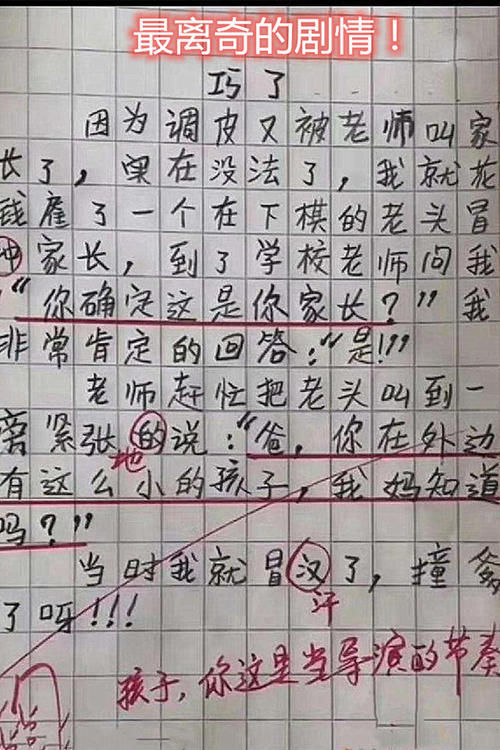 最离奇的剧情！
巧了
因为调皮又被老师叫家
长了，实在没法了，我就花
钱雇了一个在下棋的老头冒
冲家长，到了学校老师问我
“你确定这是你家长？”我
非常肯定的回答：“是!!!
老师赶忙把老头叫到一
离紧张的说：“爸，你在外边
地
有这么小的孩子，我妈知道
吗？”
当时我就冒汉了，撞爹
汗
了呀!!!
孩子，你这是当导演的节奏